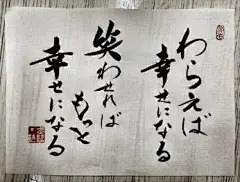 わらえば
幸せになる
笑わせれば
もっと
幸せになる